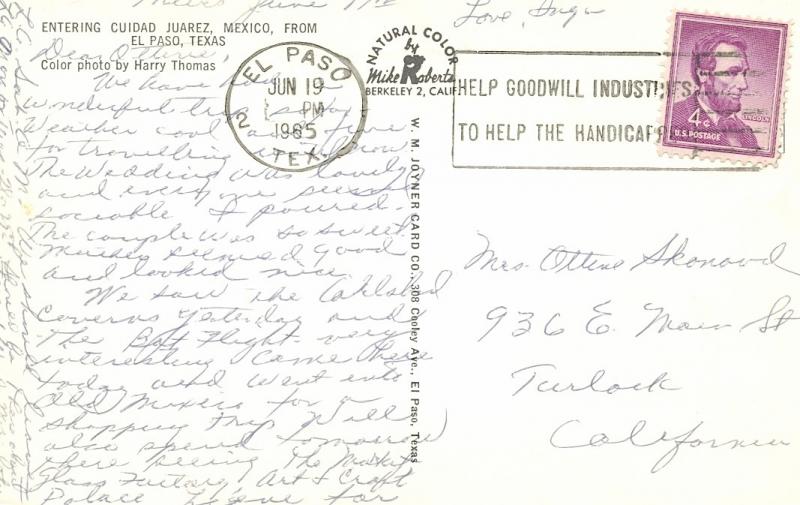 ENTERING CUIDAD JUAREZ, MEXICO, FROM
EL PASO, TEXAS
Color photo by Harry Thomas
June
Dear Ottine,
We have had a
wonderful trip so far
Weather cool and fine
for travelling
The wedding was lovely
and everyone seemed
sociable I poured.
The couple was so sweet.
seemed good
and looked nice.
We saw the Carlsbad
Caverns yesterday and
the Bat Flight - very
interesting Came here
today and went into
Old Mexico for a
shopping trip Will
also spend tomorrow
there seeing the Market
Glass Factory, Art & Craft
Palace Leave for
Love, Inga
NATURAL COLOR
by
Mike Roberts
BERKELEY 2, CALIF
W. M. JOYNER CARD CO., 308 Cooley Ave., El Paso, Texas
EL PASO
JUN 19
PM
1965
2 TEX.
HELP GOODWILL INDUSTRIES
TO HELP THE HANDICAP
4¢
LINCOLN
U.S. POSTAGE
Mrs. Ottine Skonovd
936 E. Main St
Turlock
California